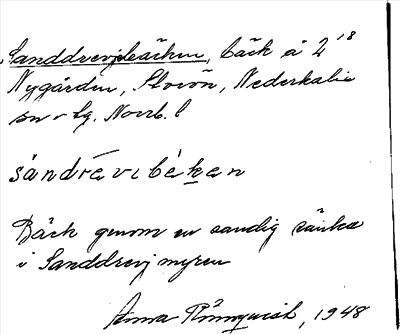 Sanddrevjbäcken, bäck å 2 18
Nygården, Storön, Nederkalix
sn o tg. Norrb. l
sándrèvɩbéken
Bäck genom en sandig sänka
i Sanddrevjmyren
Anna Rönnqvist, 1948